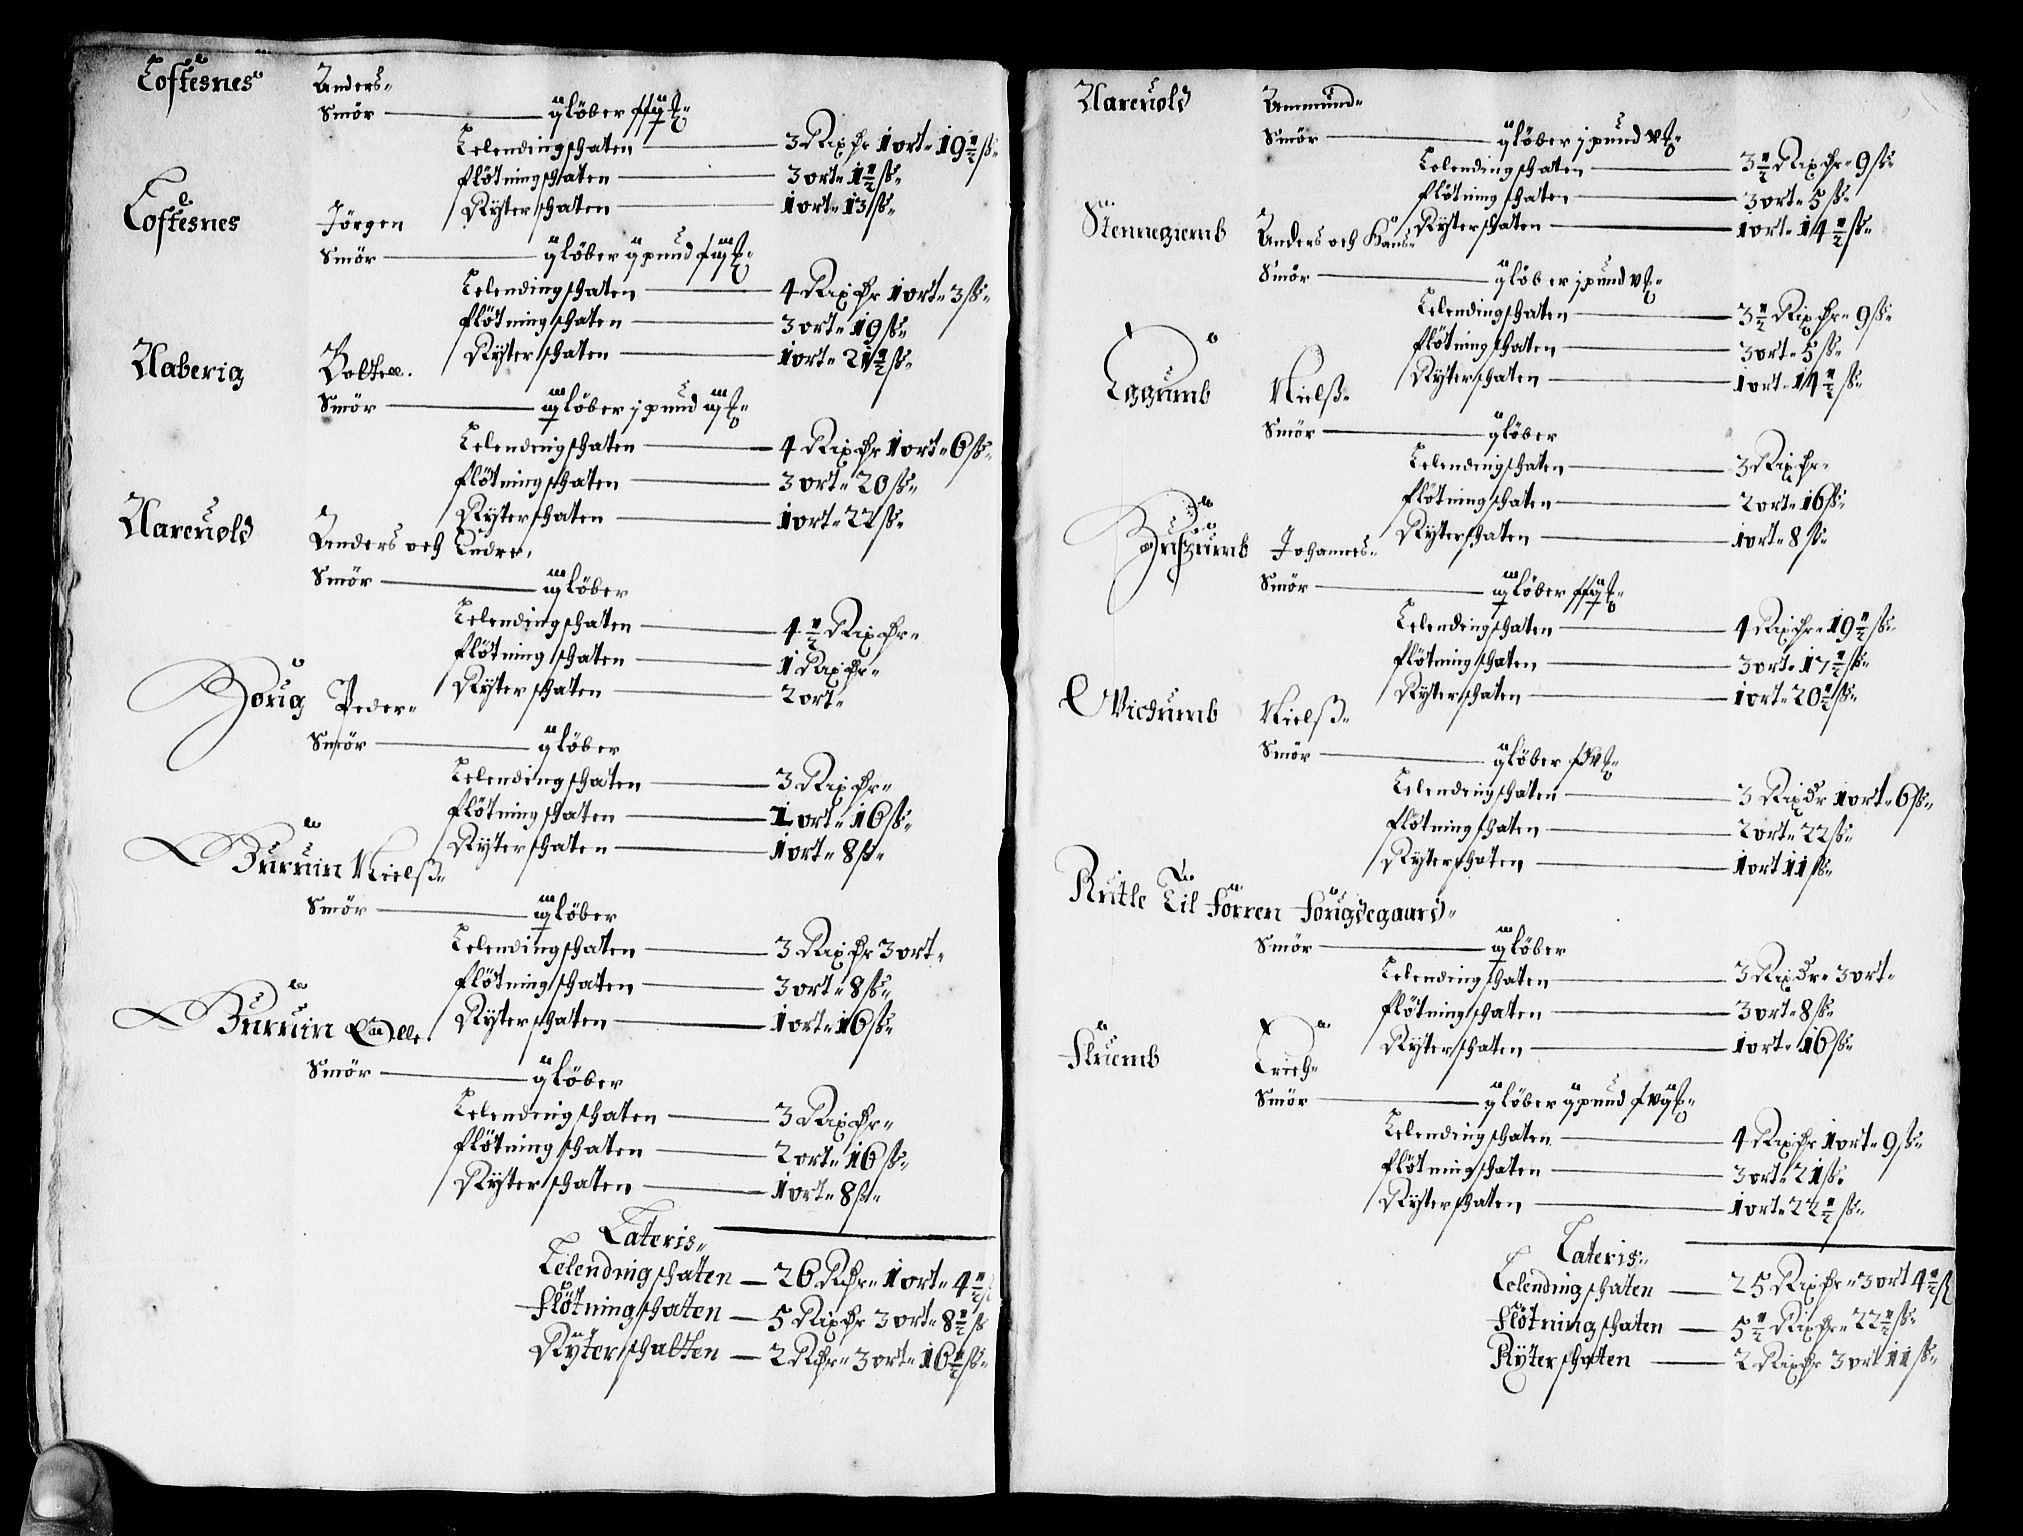 Loftesnes Anders
Smör — ij löber
Lelendingschaten — 3 Rixdr 1 ort 19½ ß
flötningschaten — 3 ort 1½ ß
Ryterschaten — 1 ort 13 ß
Loftesnes Jörgen
Smör — ij löber ij pund
Lelendingschaten — 4 Rixdr 1 ort 3 ß
flötningschaten — 3 ort 19 ß
Ryterschaten — 1 ort 21½ ß
Naberig
Smör — iij löber j pund iij
Lelendingschaten — 4 Rixdr 1 ort 6 ß
flötningschaten — 3 ort 20 ß
Ryterschaten — 1 ort 22 ß
Nareuold Anders och Endre
Smör — iiij löber
Lelendingschaten — 4½ Rixdr
flötningschaten — 1 Rixdr
Ryterschaten — 2 ort
Houig Peder
Smör — ij löber
Lelendingschaten — 3 Rixdr
flötningschaten — 1 ort 16 ß
Ryterschaten — 1 ort 8 ß
Huruin Nielß
Smör — iij löber
Lelendingschaten — 3 Rixdr 3 ort
flötningschaten — 3 ort 8 ß
Ryterschaten — 1 ort 16 ß
Huruin
Smör — ij löber
Lelendingschaten — 3 Rixdr
flötningschaten — 2 ort 16 ß
Ryterschaten — 1 ort 8 ß
Lateris
Lelendingschaten — 26 Rdr 1 ort 4½ ß
flötningschatten — 5 Rixdr 3 ort 8½ ß
Rÿterschatten — 2 Rdr 3 ort 16½ ß
Nareuold Ammund
Smör — ij löber j pund v
Lelendingschaten — 3½ Rixdr 9 ß
flötningschaten — 3 ort 5 ß
Ryterschaten — 1 ort 14½ ß
Stennegiemb Anders och Hans
Smör — ij löber j pund v
Lelendingschaten — 3½ Rixdr 9 ß
flötningschaten — 3 ort 5 ß
Ryterschaten — 1 ort 14½ ß
Eggumb Nielß
Smör — ij löber
Lelendingschaten — 3 Rixdr
flötningschaten — 2 ort 16 ß
Ryterschaten — 1 ort 8 ß
Husumb Johannes
Smör — iij löber
Lelendingschaten — 4 Rixdr 19½ ß
flötningschaten — 3 ort 17½ ß
Ryterschaten — 1 ort 20½ ß
Vichumb Nielß
Smör — ij löber
Lelendingschaten — 3 Rixdr 1 ort 6 ß
flötningschaten — 2 ort 22 ß
Ryterschaten — 1 ort 11 ß
Rutle Til förren fougdegaard
Smör — iij löber
Lelendingschaten — 3 Rixdr 3 ort
flötningschaten — 3 ort 8 ß
Ryterschaten — 1 ort 16 ß
flrumb Erich
Smör — ij löber ij pund
Lelendingschaten — 4 Rixdr 1 ort 9 ß
flötningschaten — 3 ort 21 ß
Ryterschaten — 1 ort 22½ ß
Lateris
Lelendingschaten — 25 Rixdr 3 ort 4½ ß
flötningschaten — 5½ Rixdr 22½ ß
Rÿterschatten — 2 Rixdr 3 ort 11 ß